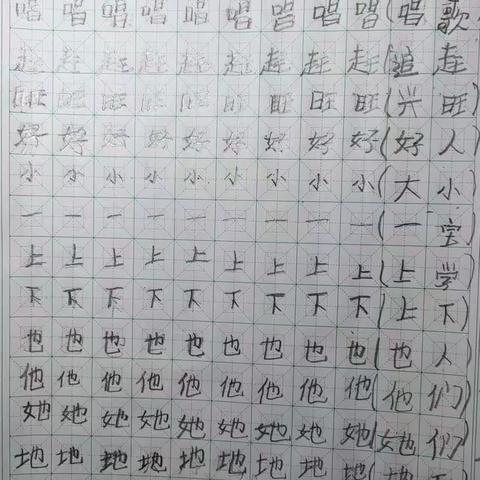 唱 唱 唱 唱 唱 唱 唱 唱 唱 (唱 歌
赶 赶 赶 赶 赶 赶 赶 赶 赶 (追 赶
旺 旺 旺 旺 旺 旺 旺 旺 旺 (兴 旺
好 好 好 好 好 好 好 好 好 (好 人)
小 小 小 小 小 小 小 小 小 (大 小
一 一 一 一 一 一 一 一 一 (一 宝
上 上 上 上 上 上 上 上 上 (上 学)
下 下 下 下 下 下 下 下 下 (上 下)
也 也 也 也 也 也 也 也 也 (也 人)
他 他 他 他 他 他 他 他 他 (他 们)
她 她 她 她 她 她 她 她 她 (她 们)
地 地 地 地 地 地 地 地 地 (地